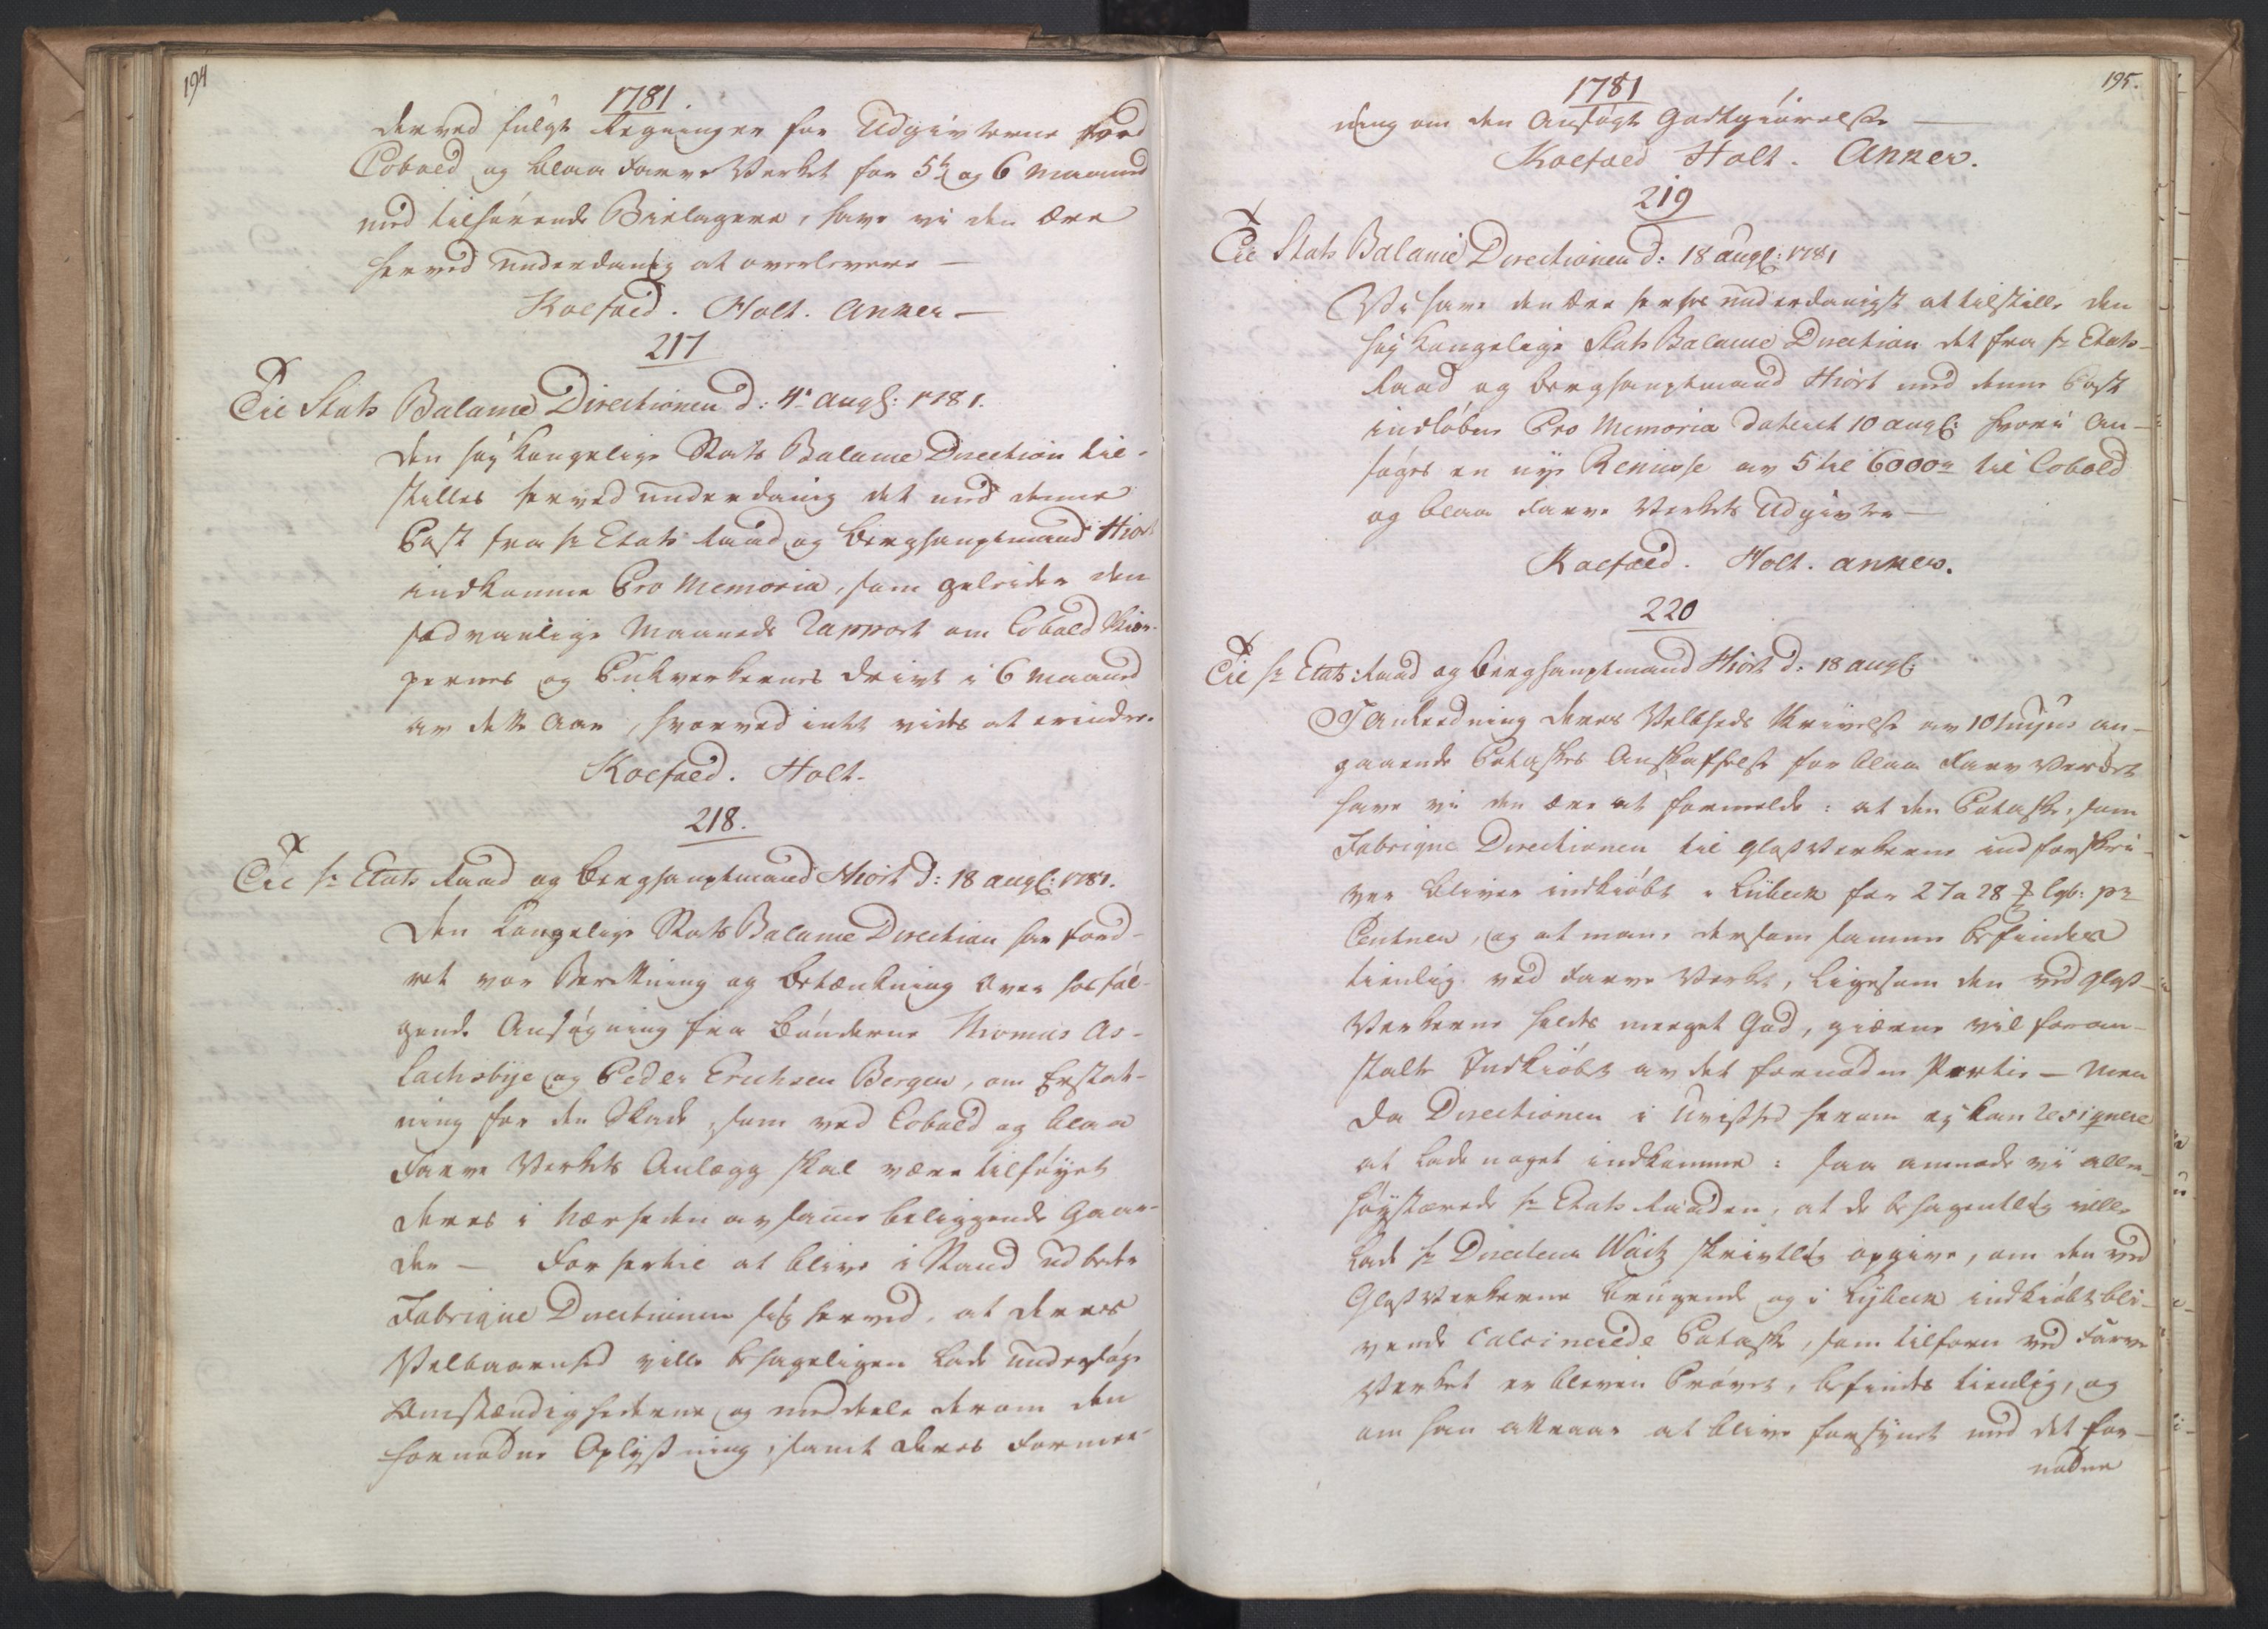 194
1781.
derved fulgte Regninger for Udgivterne ved
Cobold og blaa Farve Verket for 5te og 6 Maaned
med tilhørende Bielagere, have vi den Ære
herved underdanig at overlevere —
Koefoed. Holt. Anker —
217
Til Stats Balance Directionen d: 4de Aug: 1781.
Den høy Kongelige Stats Balance Direction til-
stilles herved underdanig det med denne
Post fra Hr Etats Raad og Berghauptmand Hiort
indkomne Pro Memoria, som geleider den
sædvanlige Maaneds Rapport om Cobold Skier-
pernes og Pukverkernes Drivt i 6 Maaned
av dette Aar, hvorved intet vides at erindre.
Koefoed. Holt.
218.
Til Hr Etats Raad og Berghauptmand Hiort d: 18 Aug: 1781.
Den Kongelige Stats Balance Direction har ford-
ret vor Berettning og Betænkning over hosføl-
gende Ansøgning fra Bønderne Thomas As-
lachsbye og Peder Erichsen Bergen, om Erstat-
ning for den Skade, som ved Cobold og blaa
Farve Verkets Anlæg skal være tilføyet
deres i Nærheden av samme beliggende Gaar-
der — For hertil at blive i Stand udbeder
Fabrique Directionen sig herved, at Deres
Velbaarenhed ville behageligen lade undersøge
Omstændighederne og meddeele derom den
fornødne Oplysning, samt Deres Formee-
195.
1781
ning om den Ansøgte Godtgiørelse —
Koefoed Holt. Anker.
219
Til Stats Balance Directionen d: 18 Aug: 1781
Vi have den Ære herhos underdanigst at tilstille den
høy Kongelige Stats Balance Direction det fra Hr Etats-
Raad og Berghauptmand Hiort med denne Post
indløbne Pro Memoria dateret 10 Aug: hvori an-
søges en nye Remisse av 5 til 6000 rd til Cobold
og blaa Farve Verkets Udgivter —
Koefoed. Holt. Anker.
220
Til Hr Etats Raad og Berghauptmand Hiort d: 18 Aug:
I Anledning Deres Velbheds Skrivelse av 10 hujus an-
gaaende Potaskes Anskaffelse for blaa Farve Verket
have vi den Ære at formelde: at den Potaske, som
Fabrique Directionen til Glas Verkerne indforskri-
ver bliver indkiøbt i Lübeck for 27 a 28 ℔ lyb: pr
Centner, og at man, dersom samme befindes
tienlig ved Farve Verket, ligesom den ved Glas-
Verkerne holdes meeget god, gierne vil foran-
stalte Indkiøbet av det fornødne Partie — Men
da Directionen i Uvished herom ej kan resiqvere
at lade noget indkomme: saa anmode vi aller-
høystærede Hr Etats Raaden, at de behagentlig ville
lade Hr Directeur Waitz skrivtlig opgive, om den ved
Glas Verkerne brugende og i Lybeck indkiøbt bli-
vende calcinerede Potaske, som tilforn ved Farve
Verket er bleven Prøvet, befindes tienlig, og
om han attraar at blive forsynet med det for-
nødne